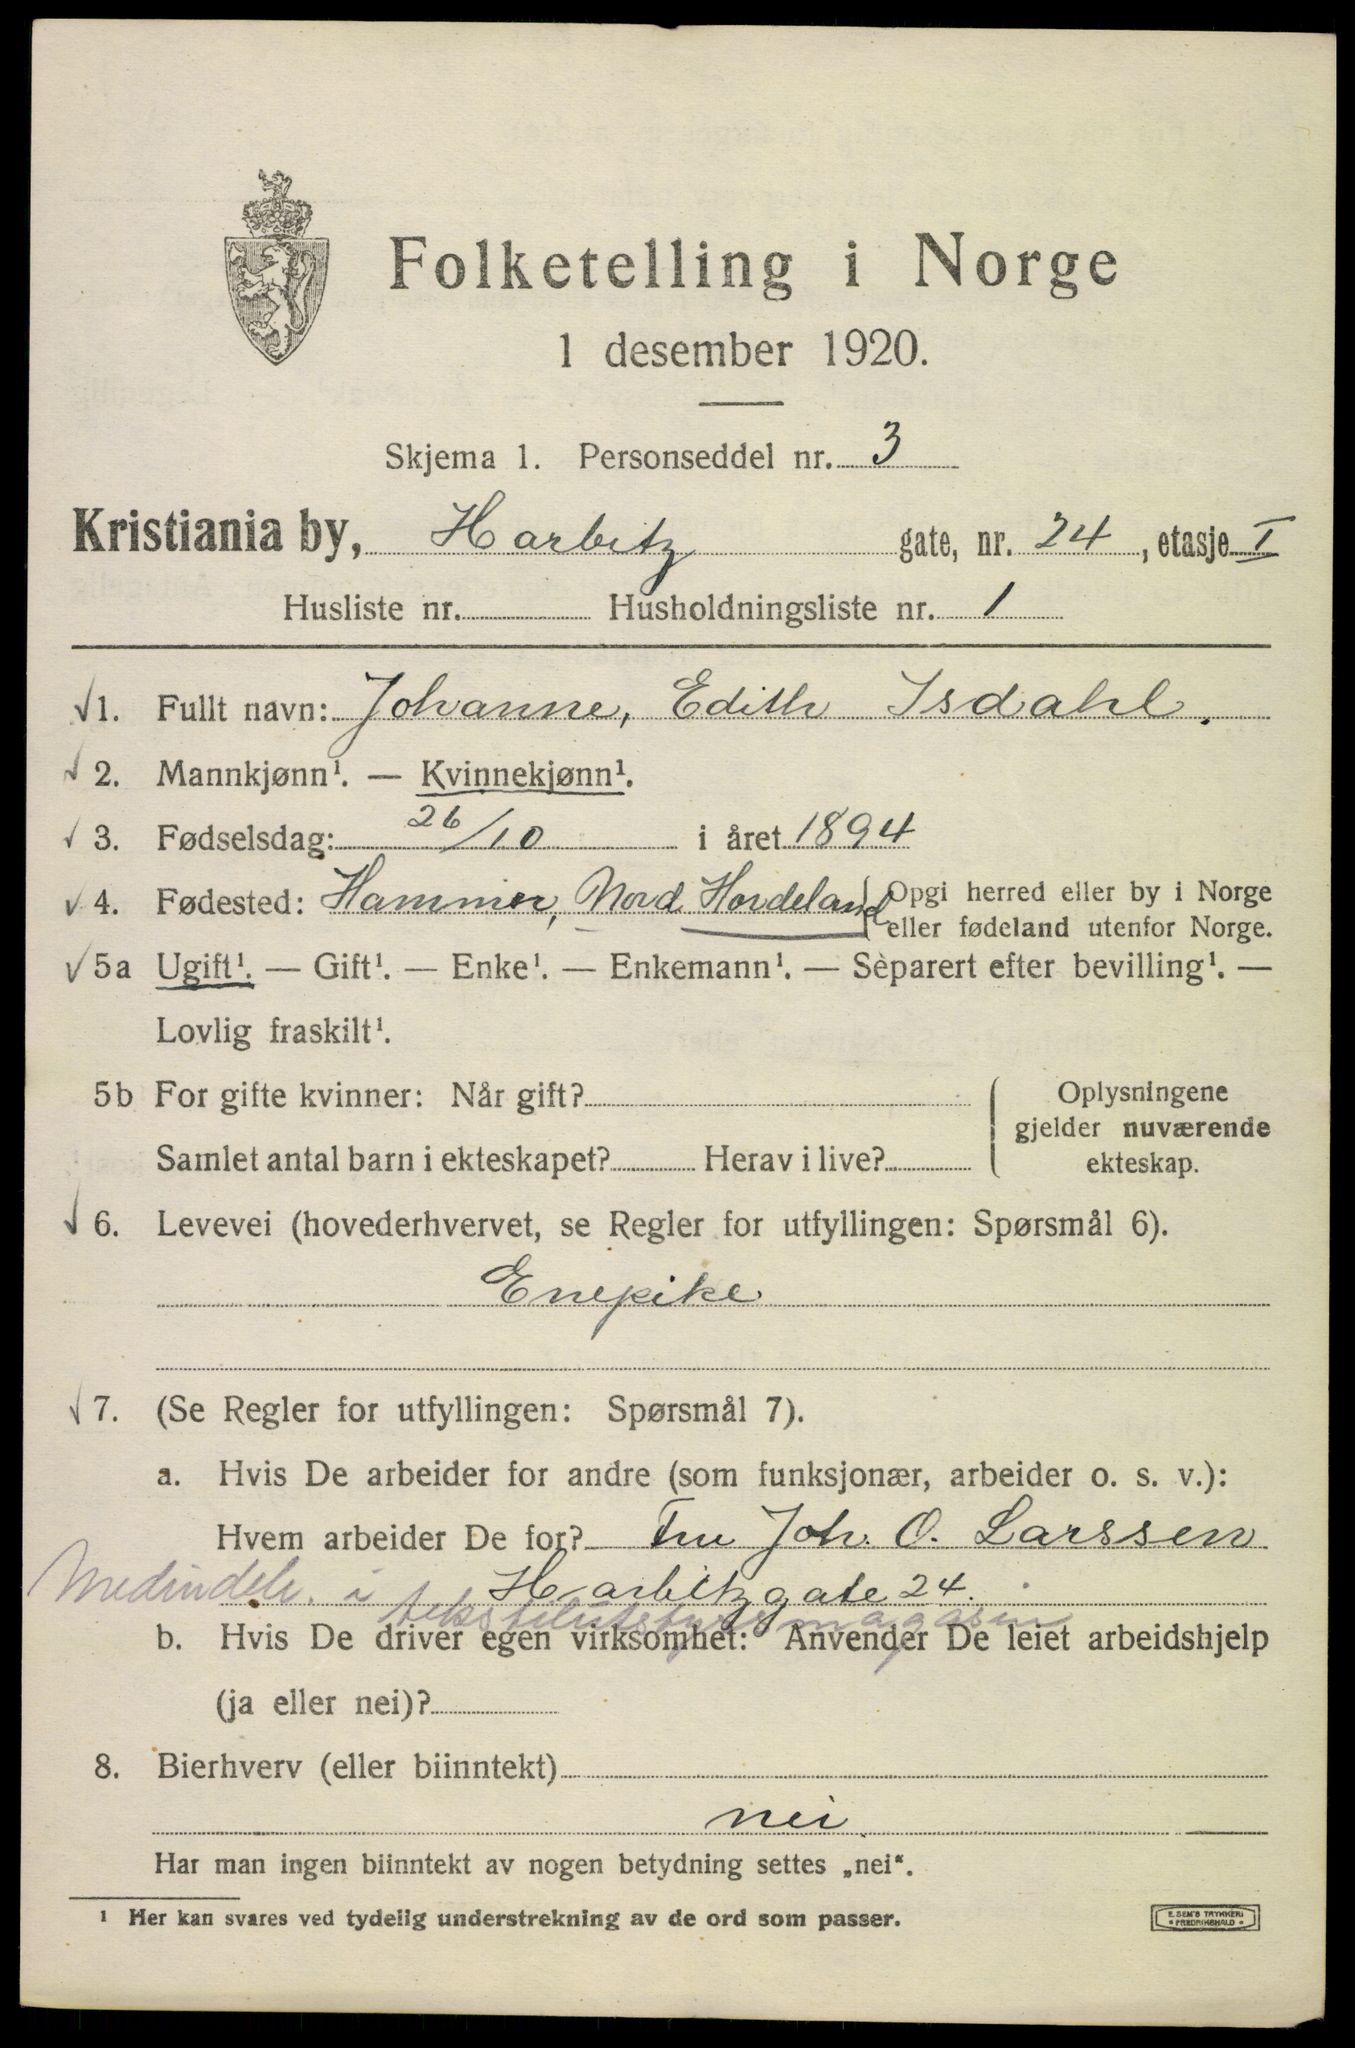 Folketelling i Norge
1 desember 1920.
Skjema 1. Personseddel nr. 3
Kristiania by, Harbitz gate, nr. 24, etasje I
Husliste nr. Husholdningsliste nr. 1
1. Fullt navn: Johanne, Edith Isdahl.
2. Mannkjønn¹. — Kvinnekjønn¹.
3. Fødselsdag: 26/10 i året 1894
4. Fødested: Hammer, Nord Hordeland Opgi herred eller by i Norge
eller fødeland utenfor Norge.
5a Ugift¹. — Gift¹. — Enke¹. — Enkemann¹. — Sèparert efter bevilling¹. —
Lovlig fraskilt¹.
5b For gifte kvinner: Når gift? Oplysningene
gjelder nuværende
Samlet antal barn i ekteskapet? Herav i live? ekteskap.
6. Levevei (hovederhvervet, se Regler for utfyllingen: Spørsmål 6).
Enepike
7. (Se Regler for utfyllingen: Spørsmål 7).
a. Hvis De arbeider for andre (som funksjonær, arbeider o. s. v.):
Hvem arbeider De for? Fru Joh. O. Larssen
Harbitzgate 24.
Medindeh. i tekstilutstyrsmagasin
b. Hvis De driver egen virksomhet: Anvender De leiet arbeidshjelp
(ja eller nei)?
8. Bierhverv (eller biinntekt)
nei
Har man ingen biinntekt av nogen betydning settes „nei“.
¹ Her kan svares ved tydelig understrekning av de ord som passer.
E. SEM'S TRYKKERI
FREDRIKSHALD